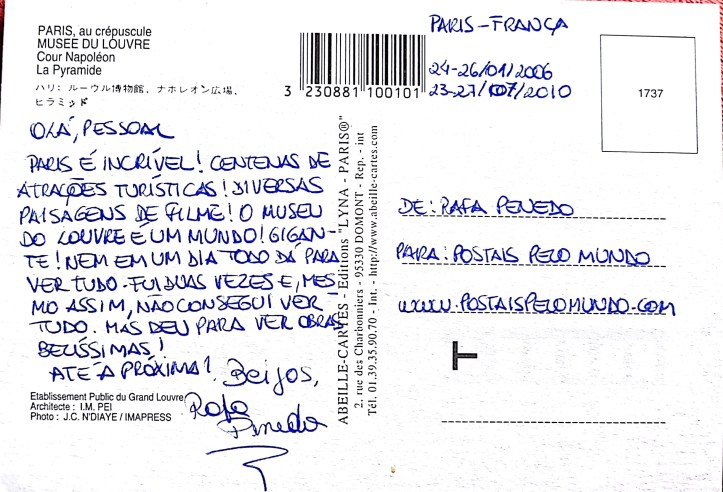 PARIS, au crépuscule
MUSEE DU LOUVRE
Cour Napoléon
La Pyramide
パリ: ルーウル博物館, ナホレオン広場,
ヒラミッド
3 230881 100101
PARIS-FRANÇA
24-26/01/2006
23-27/07/2010
1737
OLÁ, PESSOAL
PARIS É INCRÍVEL! CENTENAS DE
ATRAÇÕES TURÍSTICAS! DIVERSAS
PAISAGENS DE FILME! O MUSEU
DO LOUVRE É UM MUNDO! GIGAN-
TE! NEM EM UM DIA TODO DÁ PARA
VER TUDO. FUI DUAS VEZES E, MES-
MO ASSIM, NÃO CONSEGUI VER
TUDO. MAS DEU PARA VER OBRAS
BELÍSSIMAS!
ATÉ A PRÓXIMA!
Beijos,
Rafa
Penedo
Etablissement Public du Grand Louvre
Architecte : I.M. PEI
Photo : J.C. N'DIAYE / IMAPRESS
ABEILLE-CARTES - Editions "LYNA - PARIS®"
2, rue des Charbonniers - 95330 DOMONT - Rep. - int
Tél. 01.39.35.90.70 - Int. - http://www.abeille-cartes.com
DE: RAFA PENEDO
PARA: POSTAIS PELO MUNDO
WWW.POSTAISPELOMUNDO.COM